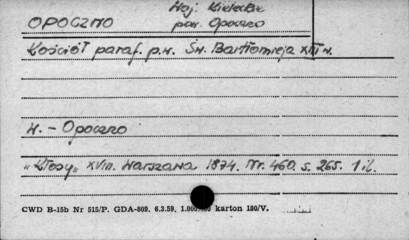 Woj. Kieleckie
OPOCZNO pow. Opoczno
Kościół paraf. p.w. Św. Bartłomieja XIII w.
W. - Opoczno
„Kłosy„ XVIII. Warszawa 1874. Nr. 460. s. 265. 1 il.
CWD B-15b Nr 515/P. GDA-809. 6.3.59. karton 180/V.